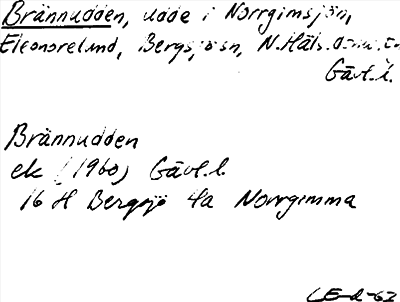 Brännudden, udde i Norrgimsjön,
Eleonorelund, Bergsjö sn, N. Häls.
Gävl.l.
Brännudden
ek (1960) Gävl.l.
16 H Bergsjö 4a Norrgimma